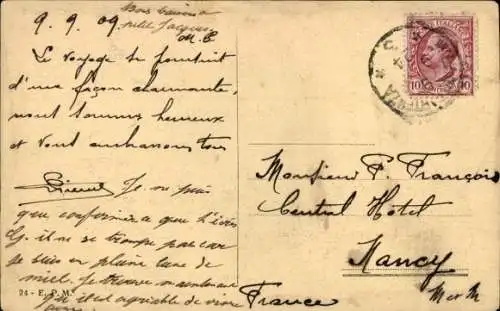 9.9.09
Bons baisers
petit Jacques
M.E
Le voyage se poursuit
d'une façon charmante,
nous sommes heureux
et vous embrassons tous
Je ne puis
que confirmer ce que t'écris
G. il ne se trompe pas car
je suis en pleine lune de
miel. Je trouve maintenant
qu'il est agréable de vivre
24 - E. P. M.
10 10
Monsieur P. François
Central Hôtel
Nancy
France
M et M